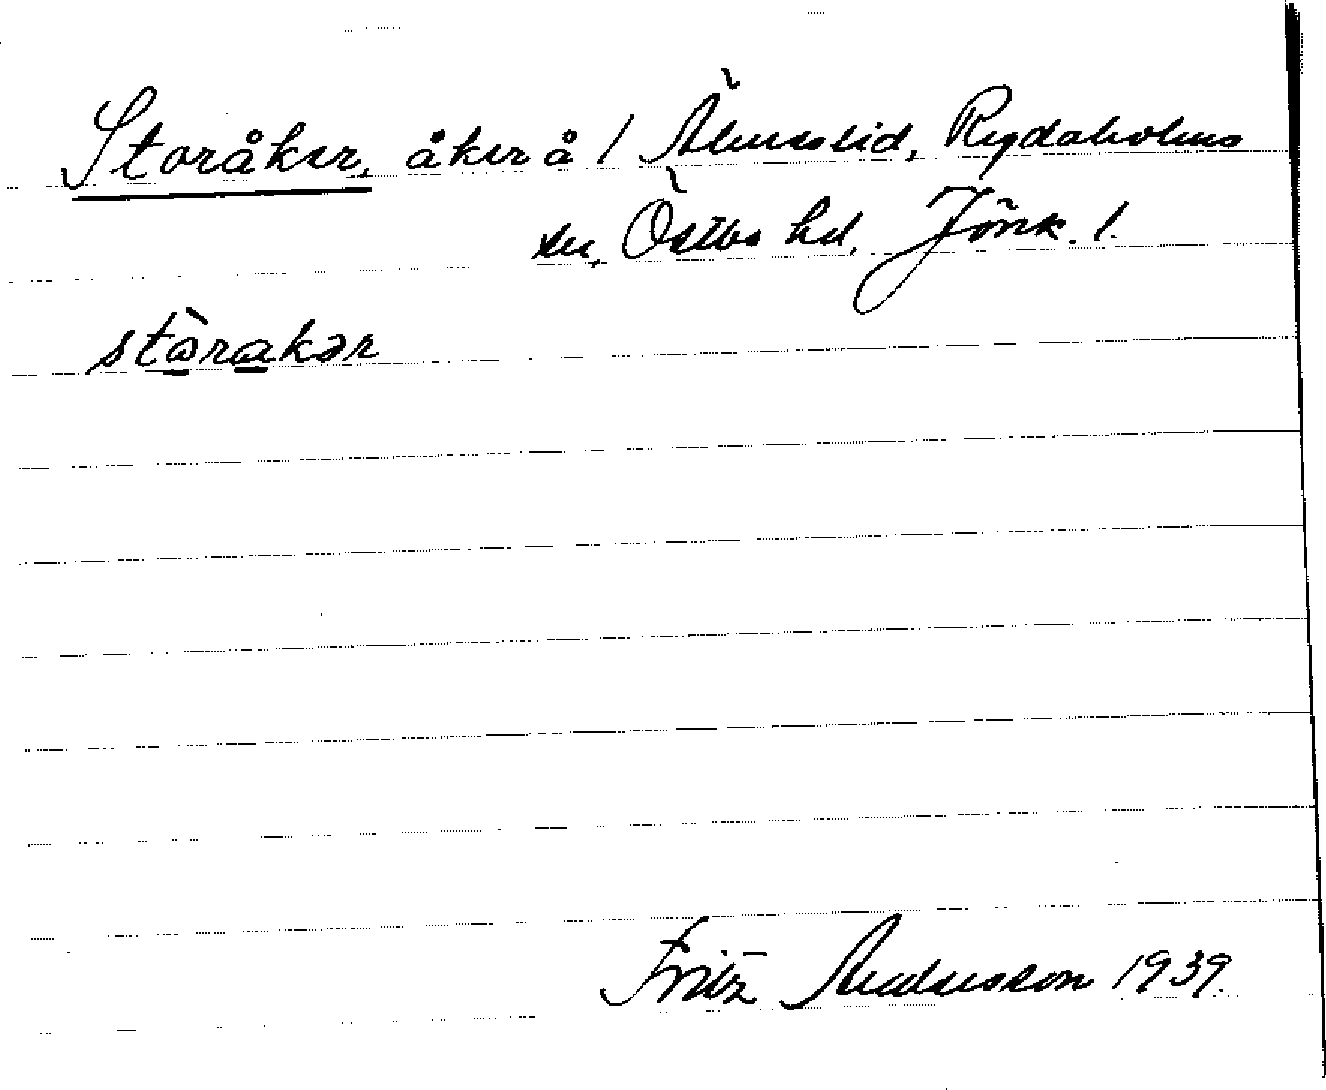 Storåker, åker å 1 Älmeslid, Rydaholms
sn, Östbo hd, Jönk. l.
stòrakər
Fritz Andersson 1939.